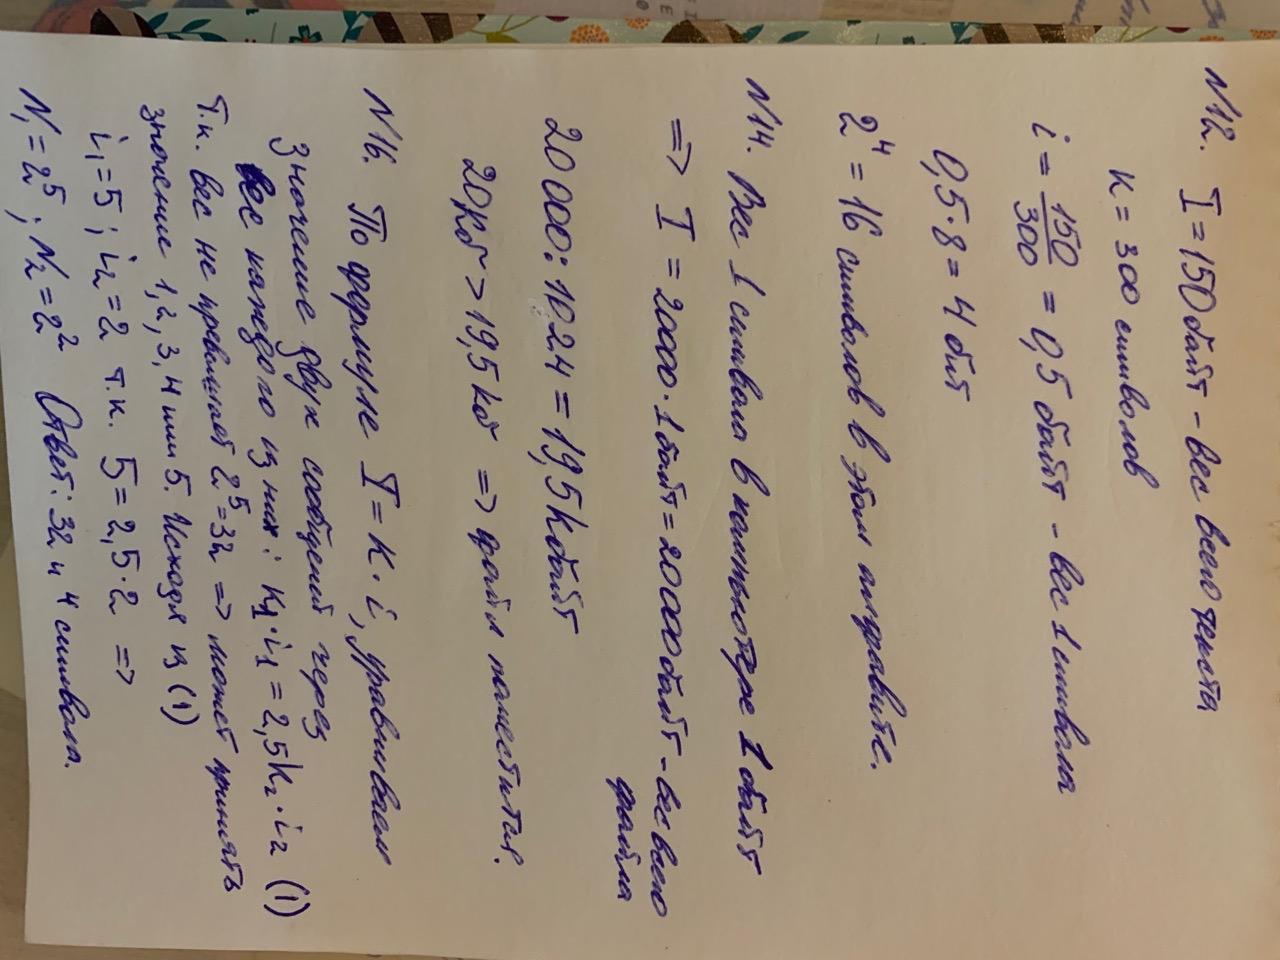 N12. I = 150 байт - вес всего текста
K = 300 символов
i = 150/300 = 0,5 байт - вес 1 символа
0,5 · 8 = 4 бит
2^4 = 16 символов в этом алфавите.
N14. Вес 1 символа в компьютере 1 байт
=> I = 20000 · 1 байт = 20000 байт - вес всего
файла
20 000 : 1024 = 19,5 Кбайт
20Кб > 19,5 Кб => файл поместится.
N16. По формуле I = K · i, уравниваем
значение двух сообщений через
вес каждого из них: K1 · i1 = 2,5K2 · i2 (1)
Т.к. вес не превышает 2^5 = 32 => может принять
значение 1, 2, 3, 4 или 5. Исходя из (1)
i1 = 5; i2 = 2 т.к. 5 = 2,5 · 2 =>
N1 = 2^5; N2 = 2^2 Ответ: 32 и 4 символа.